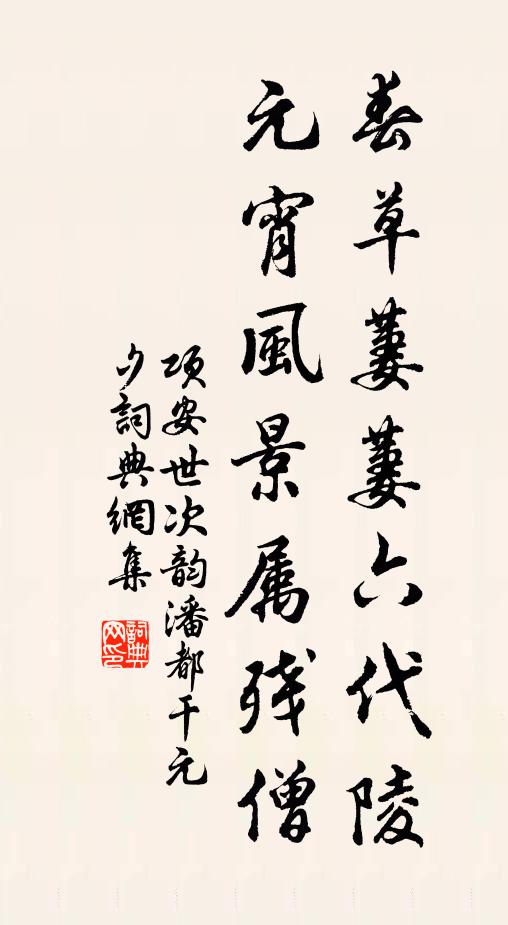 春草萋萋六代陵
元宵風景属残僧
项安世次韵潘都干元
夕詞典網集
詞典
网印